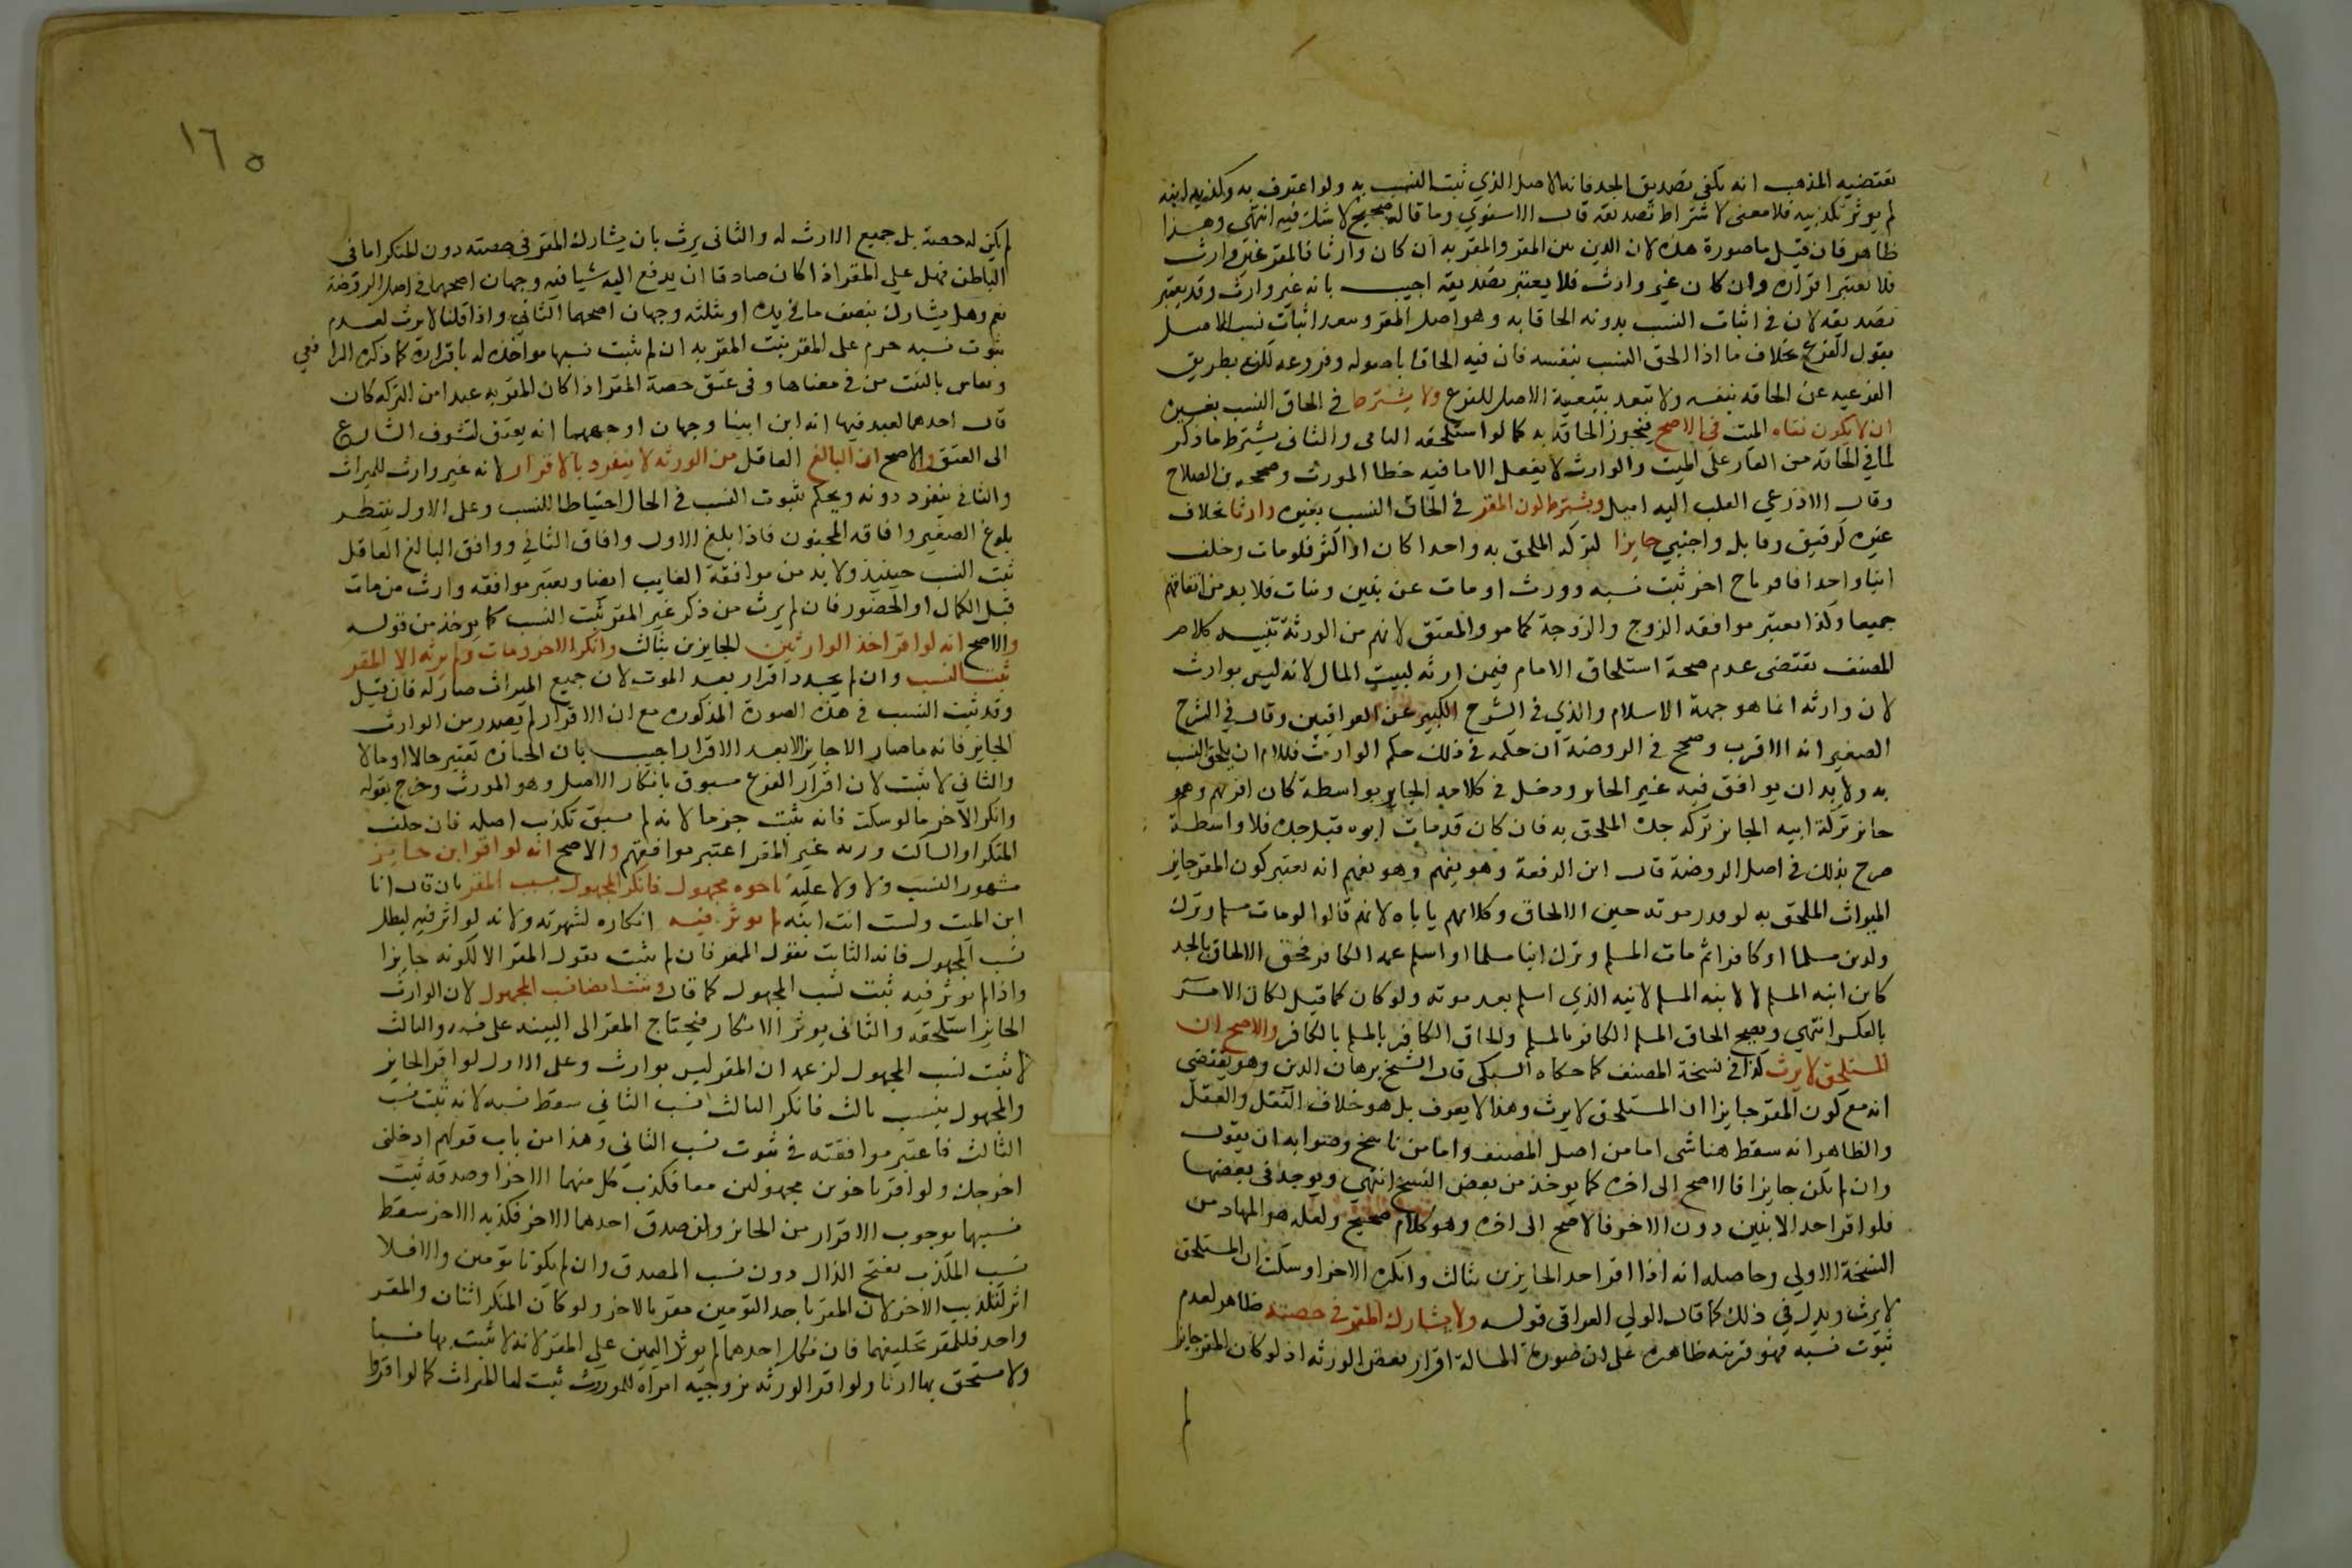 تقتضيه المذهب انه يكفي تصديق الجد فانه الاصل الذي ثبت النسب به ولو اعترف به وكذبه ابنه
لم يوثر تكذيبه فلا معنى لاشتراط تصديقه قال الاسنوي وما قاله صحيح لا شك فيه انتهى وهذا
ظاهر فان قيل ما صورة هذه لان الذين بين المقر والمقر به ان كان وارثا فالمقر غير وارث
فلا يعتبر اقراره وان كان غير وارث فلا يعتبر تصديقه اجيب بانه غير وارث وقد يعتبر
تصديقه لان في اثبات النسب بدونه الحاقا به وهو اصل المقر وبعد اثبات نسب الاصل
بقول الفرع بخلاف ما اذا الحق النسب بنفسه فان فيه الحاقا باصوله وفروعه لكن بطريق
الفرعيه عن الحاقه بنفسه ولا تبعد بتبعية الاصل للفرع ولا يشترط في الحاق النسب بغيره
ان لا يكون نفاه الميت في الاصح فيجوز الحاقه به كما لو استلحقه النافي والثاني يشترط ما ذكر
لما في الحاقه من العار على الميت والوارث لا يفعل الا ما فيه حظ المورث وصححه بن الصلاح
وقال الاذرعي القلب اليه اميل ويشترط كون المقر في الحاق النسب بغيره وارثا بخلاف
غيره كرقيق وقاتل واجنبي حايزا لتركة الملحق به واحدا كان او اكثر فلو مات وخلف
ابنا واحدا فاقر باخ اخر ثبت نسبه وورث او مات عن بنين وبنات فلا بد من اتفاقهم
جميعا وكذا يعتبر موافقه الزوج والزوجة كما مر والمعتق لانهم من الورثة تنبيه كلام
المصنف يقتضي عدم صحة استلحاق الامام فيمن ارثه لبيت المال لانه ليس بوارث
لان وارثه انما هو جهة الاسلام والذي في الشرح الكبير عن العراقيين وقال في الشرح
الصغير انه الاقرب وصحح في الروضة ان حكمه في ذلك حكم الوارث فللامام ان يلحق النسب
به ولا بد ان يوافق فيه غير الحائز ودخل في كلامه الحايز بواسطة كان اقر بهم وهو
حائز تركة ابيه الحائز تركه جده الملحق به فان كان قد مات ابوه قبل جده فلا واسطة
صرح بذلك في اصل الروضة قال ابن الرفعة وهو يفهم انه يعتبر كون المقر حايز
الميراث الملحق به لو قدر موته حين الالحاق وكلامهم ياباه لانهم قالوا لو مات مسلم وترك
ولدين مسلما او كافرا ثم مات المسلم وترك ابنا مسلما او اسلم عمه الكافر فحق الالحاق بالجد
كابن ابنه المسلم لا لابنه المسلم لابنه الذي اسلم بعد موته ولو كان كما قيل لكان الامر
بالعكس انتهى ويصح الحاق المسلم الكافر بالمسلم والحاق الكافر بالمسلم بالكافر والاصح ان
المستلحق لا يرث كذا في نسخة المصنف كما حكاه السبكي قال الشيخ برهان الدين وهو يقتضي
انه مع كون المقر حايزا ان المستلحق لا يرث وهذا لا يعرف بل هو خلاف النقل والعقل
والظاهر انه سقط هنا شي اما من اصل المصنف واما من ناسخ وصوابه ان يقول
وان لم يكن حايزا فالاصح الى اخره كما يوخذ من بعض النسخ انتهى ويوجد في بعضها
فلو اقر احد الابنين دون الاخر فالاصح الى اخره وهو كلام صحيح ولعله هو المراد من
النسخة الاولي وحاصله انه اذا اقر احد الحايزين بثالث وانكره الاخر او سكت ان المستلحق
لا يرث ويدل في ذلك كما قال الولي العراقي قوله ولا يشارك المقر في حصته ظاهر لعدم
ثبوت نسبه فهو قرينه ظاهره على ان صورة المسالة اقرار بعض الورثه اذ لو كان المقر حايزا
لم
١٦٥
لم يكن له حصة بل جميع الارث له والثاني يرث بان يشارك المقر في حصته دون المنكر اما في
الباطن فهل على المقر اذا كان صادقا ان يدفع اليه شيا فيه وجهان اصحهما في اصل الروضة
نعم وهل يشارك بنصف ما في يده او بثلثه وجهان اصحهما الثاني واذا قلنا لا يرث لعدم
ثبوت نسبه حرم على المقر بنت المقر به ان لم يثبت نسبها مواخذه له باقراره كما ذكره الرافعي
ويقاس بالبنت من في معناها وفي عتق حصة المقر اذا كان المقر به عبدا من التركه كان
قال احدهما لعبد فيها انه ابن ابينا وجهان اوجههما انه يعتق لتشوف الشارع
الى العتق والاصح ان البالغ العاقل من الورثه لا ينفرد بالاقرار لانه غير وارث للميراث
والثاني ينفرد دونه ويحكم بثبوت النسب في الحال احتياطا للنسب وعلى الاول ينتظر
بلوغ الصغير وافاقه المجنون فاذا بلغ الاول وافاق الثاني ووافق البالغ العاقل
ثبت النسب حينيذ ولا بد من موافقة الغايب ايضا ويعتبر موافقه وارث من مات
قبل الكمال او الحضور فان لم يرث من ذكر غير المقر ثبت النسب كما يوخذ من قوله
والاصح انه لو اقر احد الوارثين الحايزين بثالث وانكر الاخر ومات ولم يرثه الا المقر
ثبت النسب وان لم يجدد اقرار بعد الموت لان جميع الميراث صار له فان قيل
وقد ثبت النسب في هذه الصورة المذكوره مع ان الاقرار لم يصدر من الوارث
الحايز فانه ما صار الا حايز الا بعد الاقرار اجيب بان الحيازه تعتبر حالا او مالا
والثاني لا يثبت لان اقرار الفرع مسبوق بانكار الاصل وهو المورث وخرج بقوله
وانكر الاخر ما لو سكت فانه يثبت جزما لانه لم يسبق تكذيب اصله فان خلف
المنكر او الساكت ورثه غير المقر اعتبر موافقتهم والاصح انه لو اقر ابن حايز
مشهور النسب ولا ولا عليه باخوه مجهول فانكر المجهول نسب المقر بان قال انا
ابن الميت ولست انت ابنه لم يوثر فيه انكاره لشهرته ولانه لو اثر فيه لبطل
نسب المجهول فانه الثابت بقول المقر فان لم يثبت بقول المقر الا لكونه حايزا
واذا لم يوثر فيه ثبت نسب المجهول كما قال ويثبت ايضا نسب المجهول لان الوارث
الحايز استلحقه والثاني يوثر الانكار فيحتاج المقر الى البينه على نسبه والثالث
لا يثبت نسب المجهول لزعمه ان المقر ليس بوارث وعلى الاول لو اقر الحايز
والمجهول بنسب ثالث فانكر الثالث نسب الثاني سقط نسبه لانه ثبت نسب
الثالث فاعتبر موافقته في ثبوت نسب الثاني وهذا من باب قولهم ادخلني
اخرجك ولو اقر باخوين مجهولين معا فكذب كل منهما الاخر او صدقه ثبت
نسبهما بوجوب الاقرار من الحائز وان صدق احدهما الاخر فكذبه الاخر سقط
نسب المكذب بفتح الذال دون نسب المصدق وان لم يكونا توءمين والا فلا
اثر لتكذيب الاخر لان المقر باحد التوءمين مقر بالاخر ولو كان المنكر اثنان والمقر
واحد فللمقر تحليفهما فان نكل احدهما لم يوثر اليمين على المقر لانه لا يثبت بها نسبا
ولا يستحق بها ارثا ولو اقر الورثه بزوجيه امراه للمورث ثبت لها الميراث كما لو اقروا